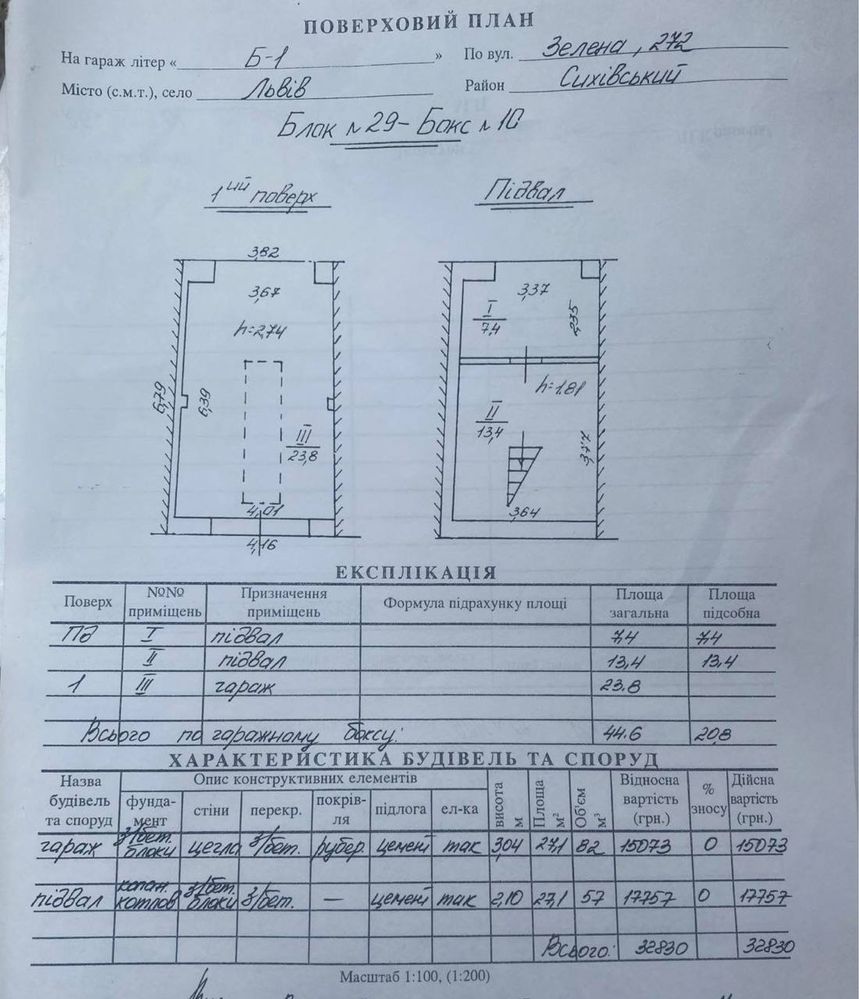 ПОВЕРХОВИЙ ПЛАН
На гараж літер « Б-1 » По вул. Зелена, 272
Місто (с.м.т.), село Львів Район Сихівський
Блок №29 - Бокс №10
1ий поверх Підвал
3,82
3,67
h=2,74
6,79
6,39
III
23,8
4,01
4,16
3,37
I
7,4
2,35
h=1.81
II
13,4
3,77
3,64
ЕКСПЛІКАЦІЯ
Поверх №№ приміщень Призначення приміщень Формула підрахунку площі Площа загальна Площа підсобна
Пд I підвал 7,4 7,4
II підвал 13,4 13,4
1 III гараж 23.8
Всього по гаражному боксу: 44.6 20,8
ХАРАКТЕРИСТИКА БУДІВЕЛЬ ТА СПОРУД
Назва будівель та споруд Опис конструктивних елементів висота м Площа м² Об'єм м³ Відносна вартість (грн.) % зносу Дійсна вартість (грн.)
фунда-мент стіни перекр. покрів-ля підлога ел-ка
гараж з/бет. блоки цегла з/бет. рубер цемент так 3,04 27,1 82 15073 0 15073
підвал копан. котлов з/бет. блоки з/бет. — цемент так 2,10 27,1 57 17757 0 17757
Всього: 32830 32830
Масштаб 1:100, (1:200)